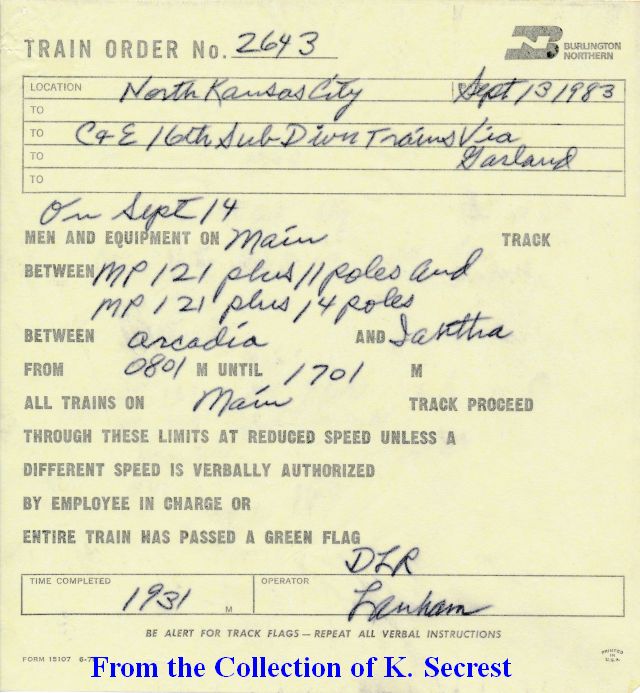 TRAIN ORDER No. 2643
BURLINGTON NORTHERN
LOCATION North Kansas City Sept 13 1983
TO
TO C&E 16th Sub Divn Trains Via
TO Garland
TO
On Sept 14
MEN AND EQUIPMENT ON Main TRACK
BETWEEN MP 121 plus 11 poles and
MP 121 plus 14 poles
BETWEEN Arcadia AND
FROM 0801 M UNTIL 1701 M
ALL TRAINS ON Main TRACK PROCEED
THROUGH THESE LIMITS AT REDUCED SPEED UNLESS A
DIFFERENT SPEED IS VERBALLY AUTHORIZED
BY EMPLOYEE IN CHARGE OR
ENTIRE TRAIN HAS PASSED A GREEN FLAG
DLR
TIME COMPLETED 1931 M OPERATOR Lanham
BE ALERT FOR TRACK FLAGS — REPEAT ALL VERBAL INSTRUCTIONS
FORM 15107 PRINTED IN U.S.A.
From the Collection of K. Secrest